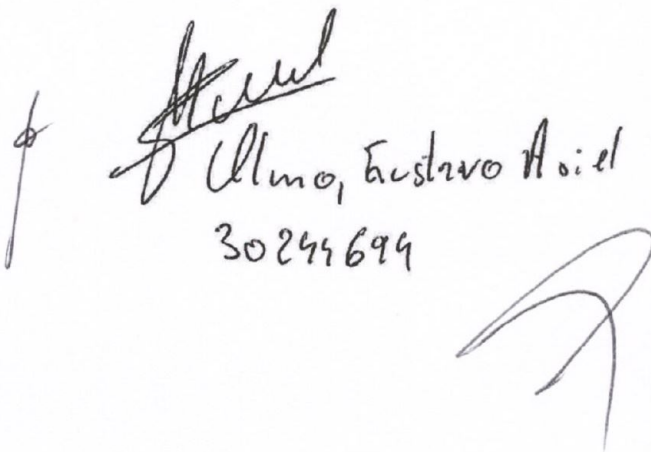 Olmo, Gustavo Ariel
30244694